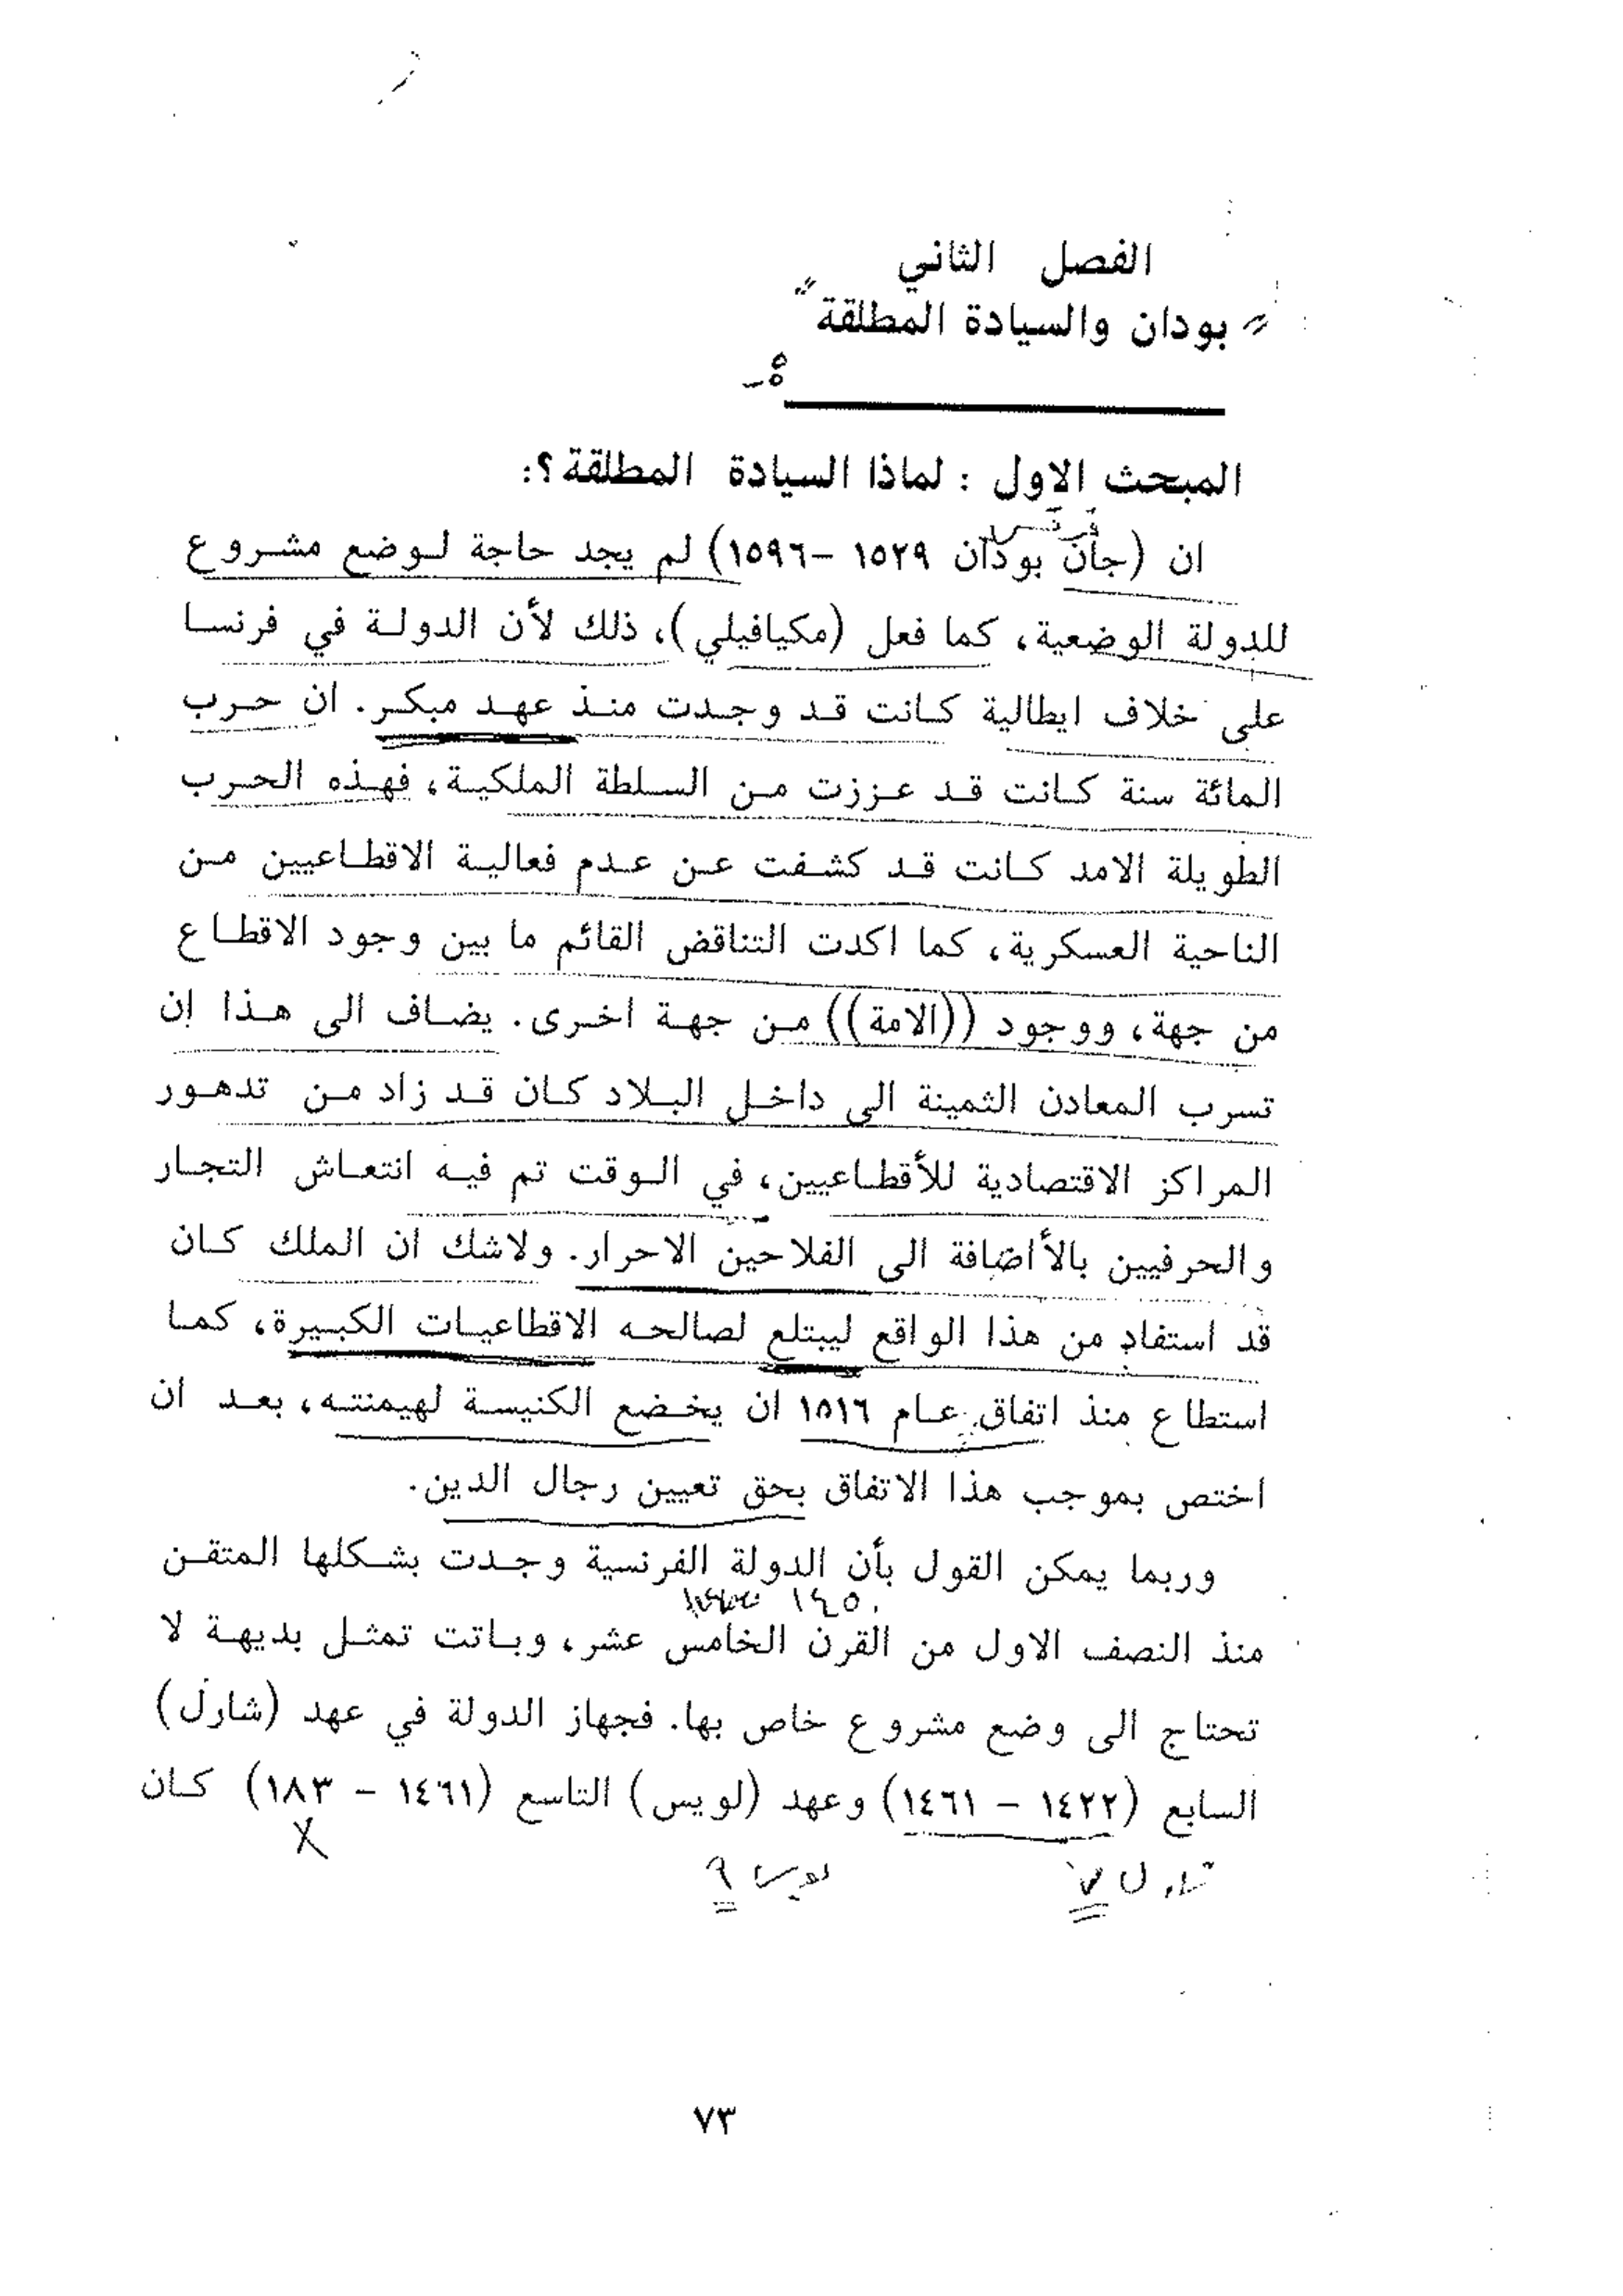 الفصل الثاني
" بودان والسيادة المطلقة "
المبحث الاول : لماذا السيادة المطلقة؟:
ان (جان بودان ١٥٢٩ –١٥٩٦) لم يجد حاجة لوضع مشروع
للدولة الوضعية، كما فعل (مكيافيلي)، ذلك لأن الدولة في فرنسا
على خلاف ايطالية كانت قد وجدت منذ عهد مبكر. ان حرب
المائة سنة كانت قد عززت من السلطة الملكية، فهذه الحرب
الطويلة الامد كانت قد كشفت عن عدم فعالية الاقطاعيين من
الناحية العسكرية، كما اكدت التناقض القائم ما بين وجود الاقطاع
من جهة، ووجود ((الامة)) من جهة اخرى. يضاف الى هذا إن
تسرب المعادن الثمينة الى داخل البلاد كان قد زاد من تدهور
المراكز الاقتصادية للأقطاعيين، في الوقت تم فيه انتعاش التجار
والحرفيين بالأاضافة الى الفلاحين الاحرار. ولاشك ان الملك كان
قد استفاد من هذا الواقع ليبتلع لصالحه الاقطاعيات الكبيرة، كما
استطاع منذ اتفاق عام ١٥١٦ ان يخضع الكنيسة لهيمنته، بعد ان
اختص بموجب هذا الاتفاق بحق تعيين رجال الدين.
وربما يمكن القول بأن الدولة الفرنسية وجدت بشكلها المتقن
١٤٥٠
منذ النصف الاول من القرن الخامس عشر، وباتت تمثل بديهة لا
تحتاج الى وضع مشروع خاص بها. فجهاز الدولة في عهد (شارل)
السابع (١٤٢٢ – ١٤٦١) وعهد (لويس) التاسع (١٤٦١ – ١٨٣) كان
X
شارل ٧ لويس ٩
٧٣